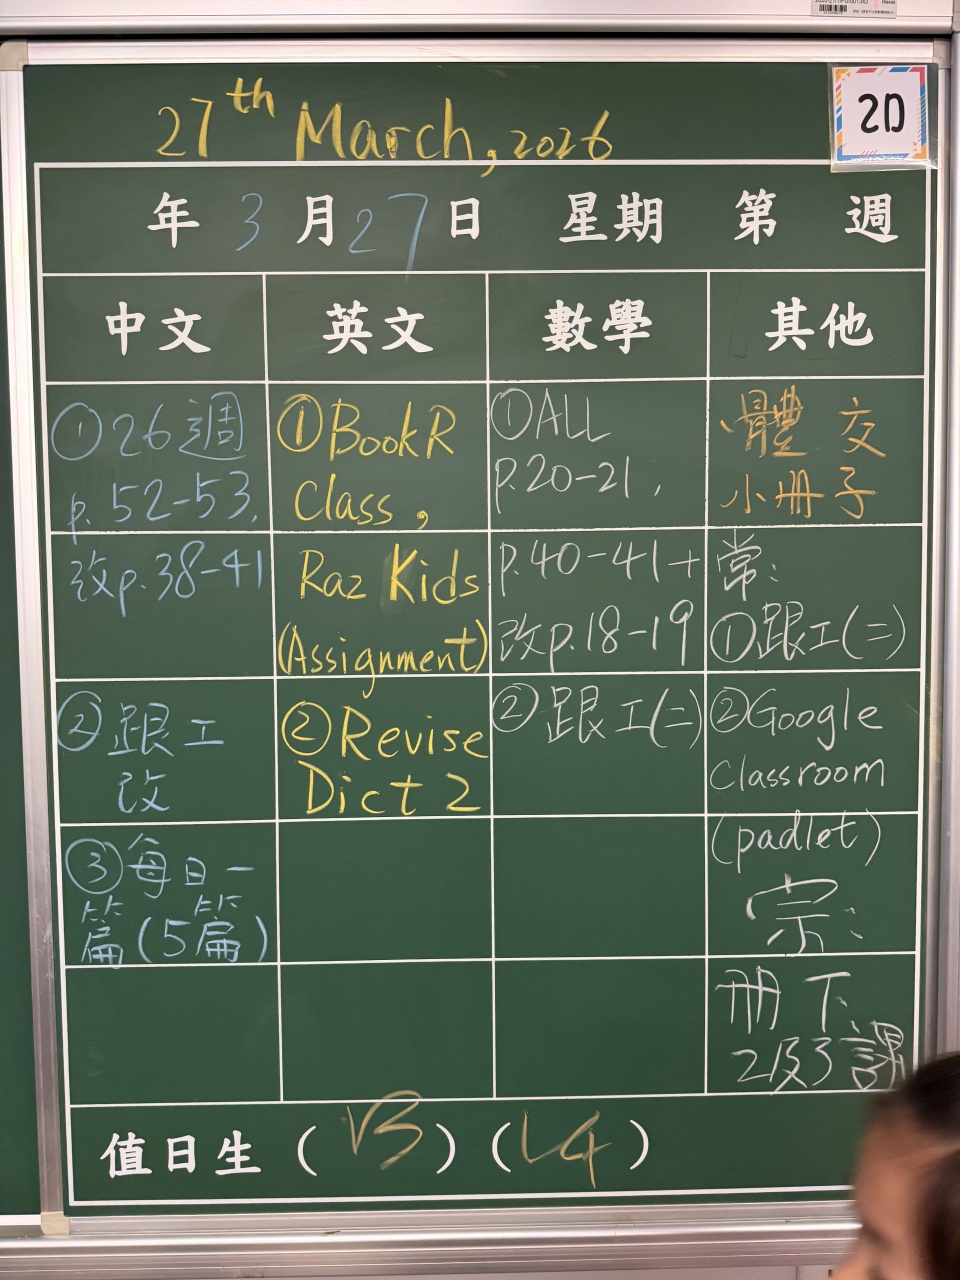 2D
27th March, 2026
年 3 月 27 日 星期 第 週
中文
英文
數學
其他
①26週
p.52-53,
改p.38-41
②跟工
改
③每日一
篇(5篇)
①BookR
Class,
Raz Kids
(Assignment)
②Revise
Dict 2
①ALL
p.20-21,
p.40-41+
改p.18-19
②跟工(二)
體 交
小冊子
常:
①跟工(二)
②Google
Classroom
(padlet)
宗:
冊下
2及3課
值日生 ( 13 ) ( 14 )